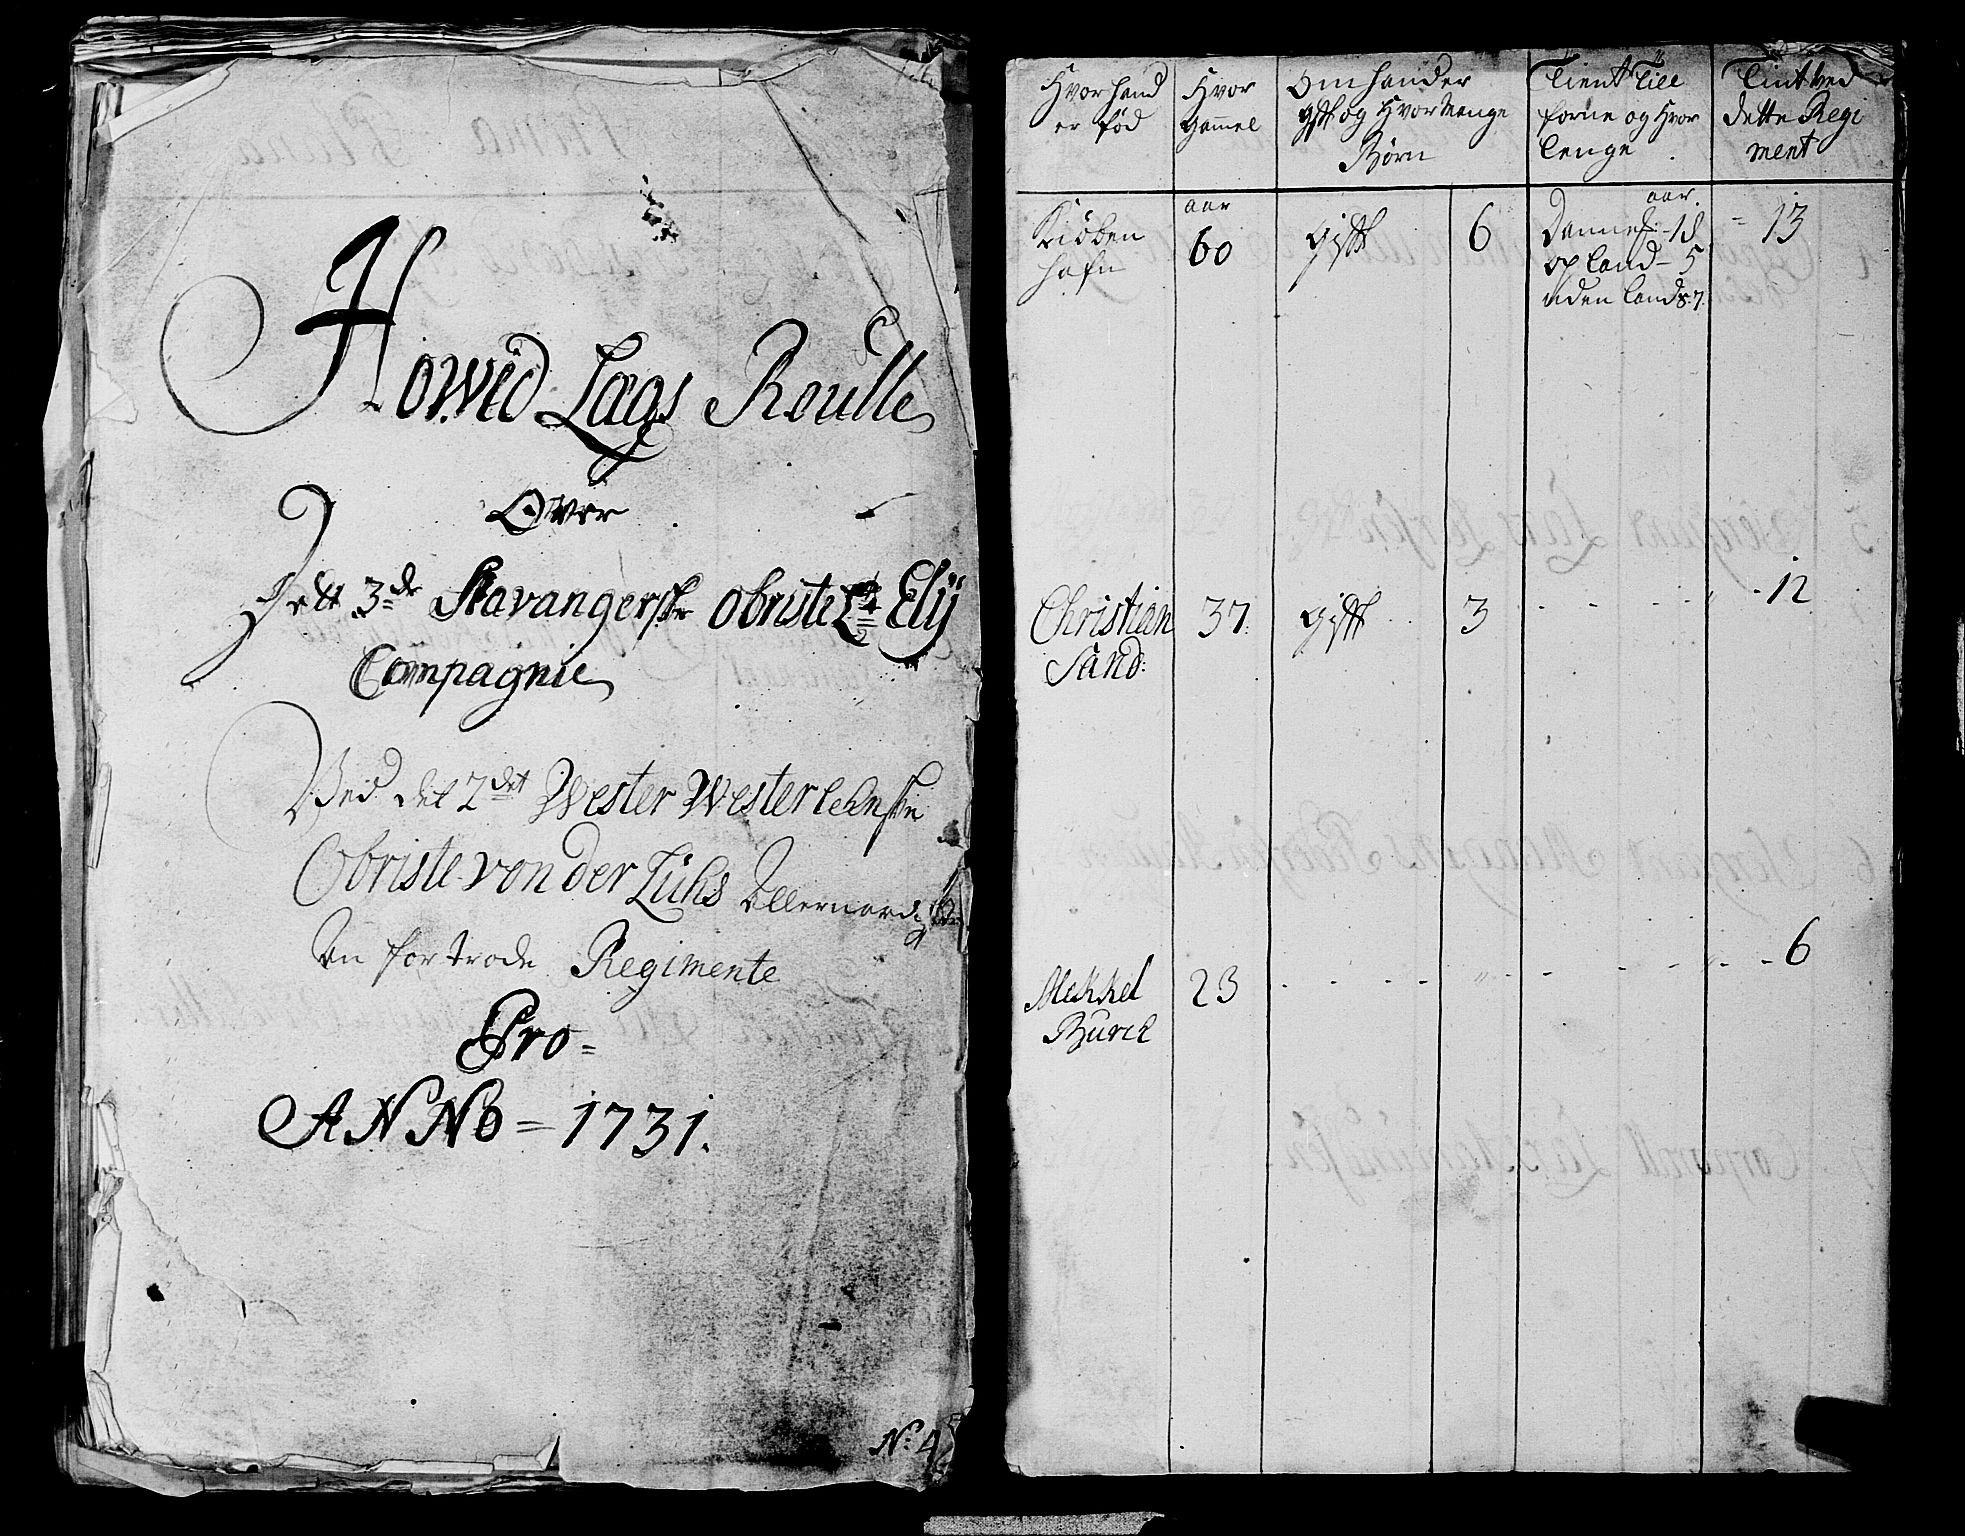 Howed Lags Roulle
Over
Dett 3de Stavangerske Obriste Lt Elij
Compagnie
Ved det 2det Wester Westerlehnske
Obriste von der Lühs Allernaad
An for trode Regimente
Pro =
ANNO = 1731.
No 4
Hvor hand
er fød
Hvor
gammel
Om hand er
gift og Hvor Mange
Børn
Tient Till
forne og Hvor
Lenge
Tint ved
dette Regi
ment
Kiøben
hafn
aar
60
gift
6
aar.
Danne
op land - 5
uden lands 7.
= 13
Christian
Sand:
37
gift
3
- 12
Mekkel
Burch
23
- 6